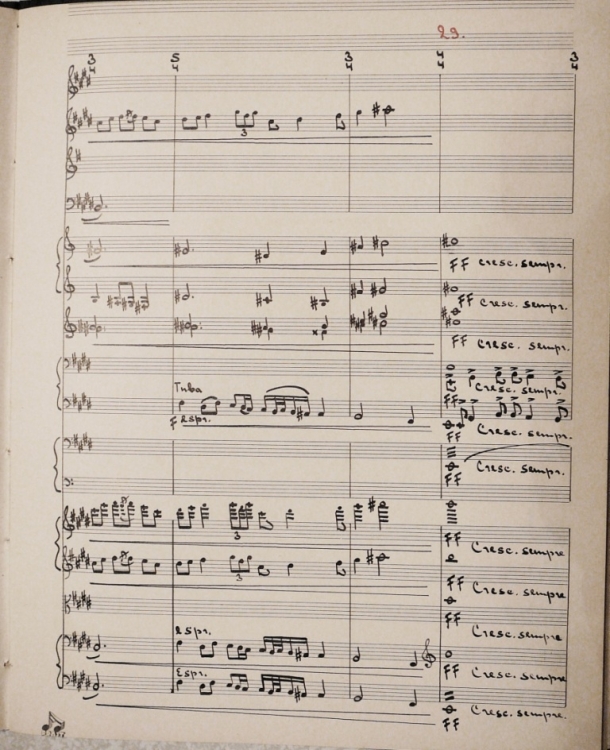 29.
3 5 3 4 3
4 4 4 4 4
3
FF Cresc. sempr.
FF Cresc. sempr.
FF Cresc. sempr.
Tuba
Cresc. sempr.
FF
f espr.
Cresc. sempr.
FF
Cresc. sempr.
FF
3
FF Cresc. sempre
3
FF Cresc. sempre
FF
Cresc. sempre
espr.
FF Cresc. sempre
Espr.
Cresc. sempre.
FF